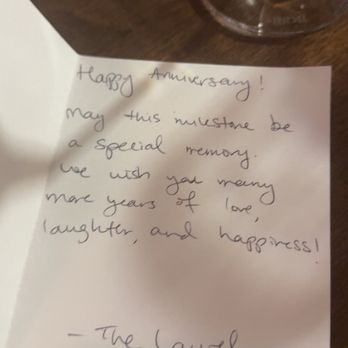 Happy Anniversary!
May this milestone be
a special memory.
We wish you many
more years of love,
laughter, and happiness!
- The Laurel